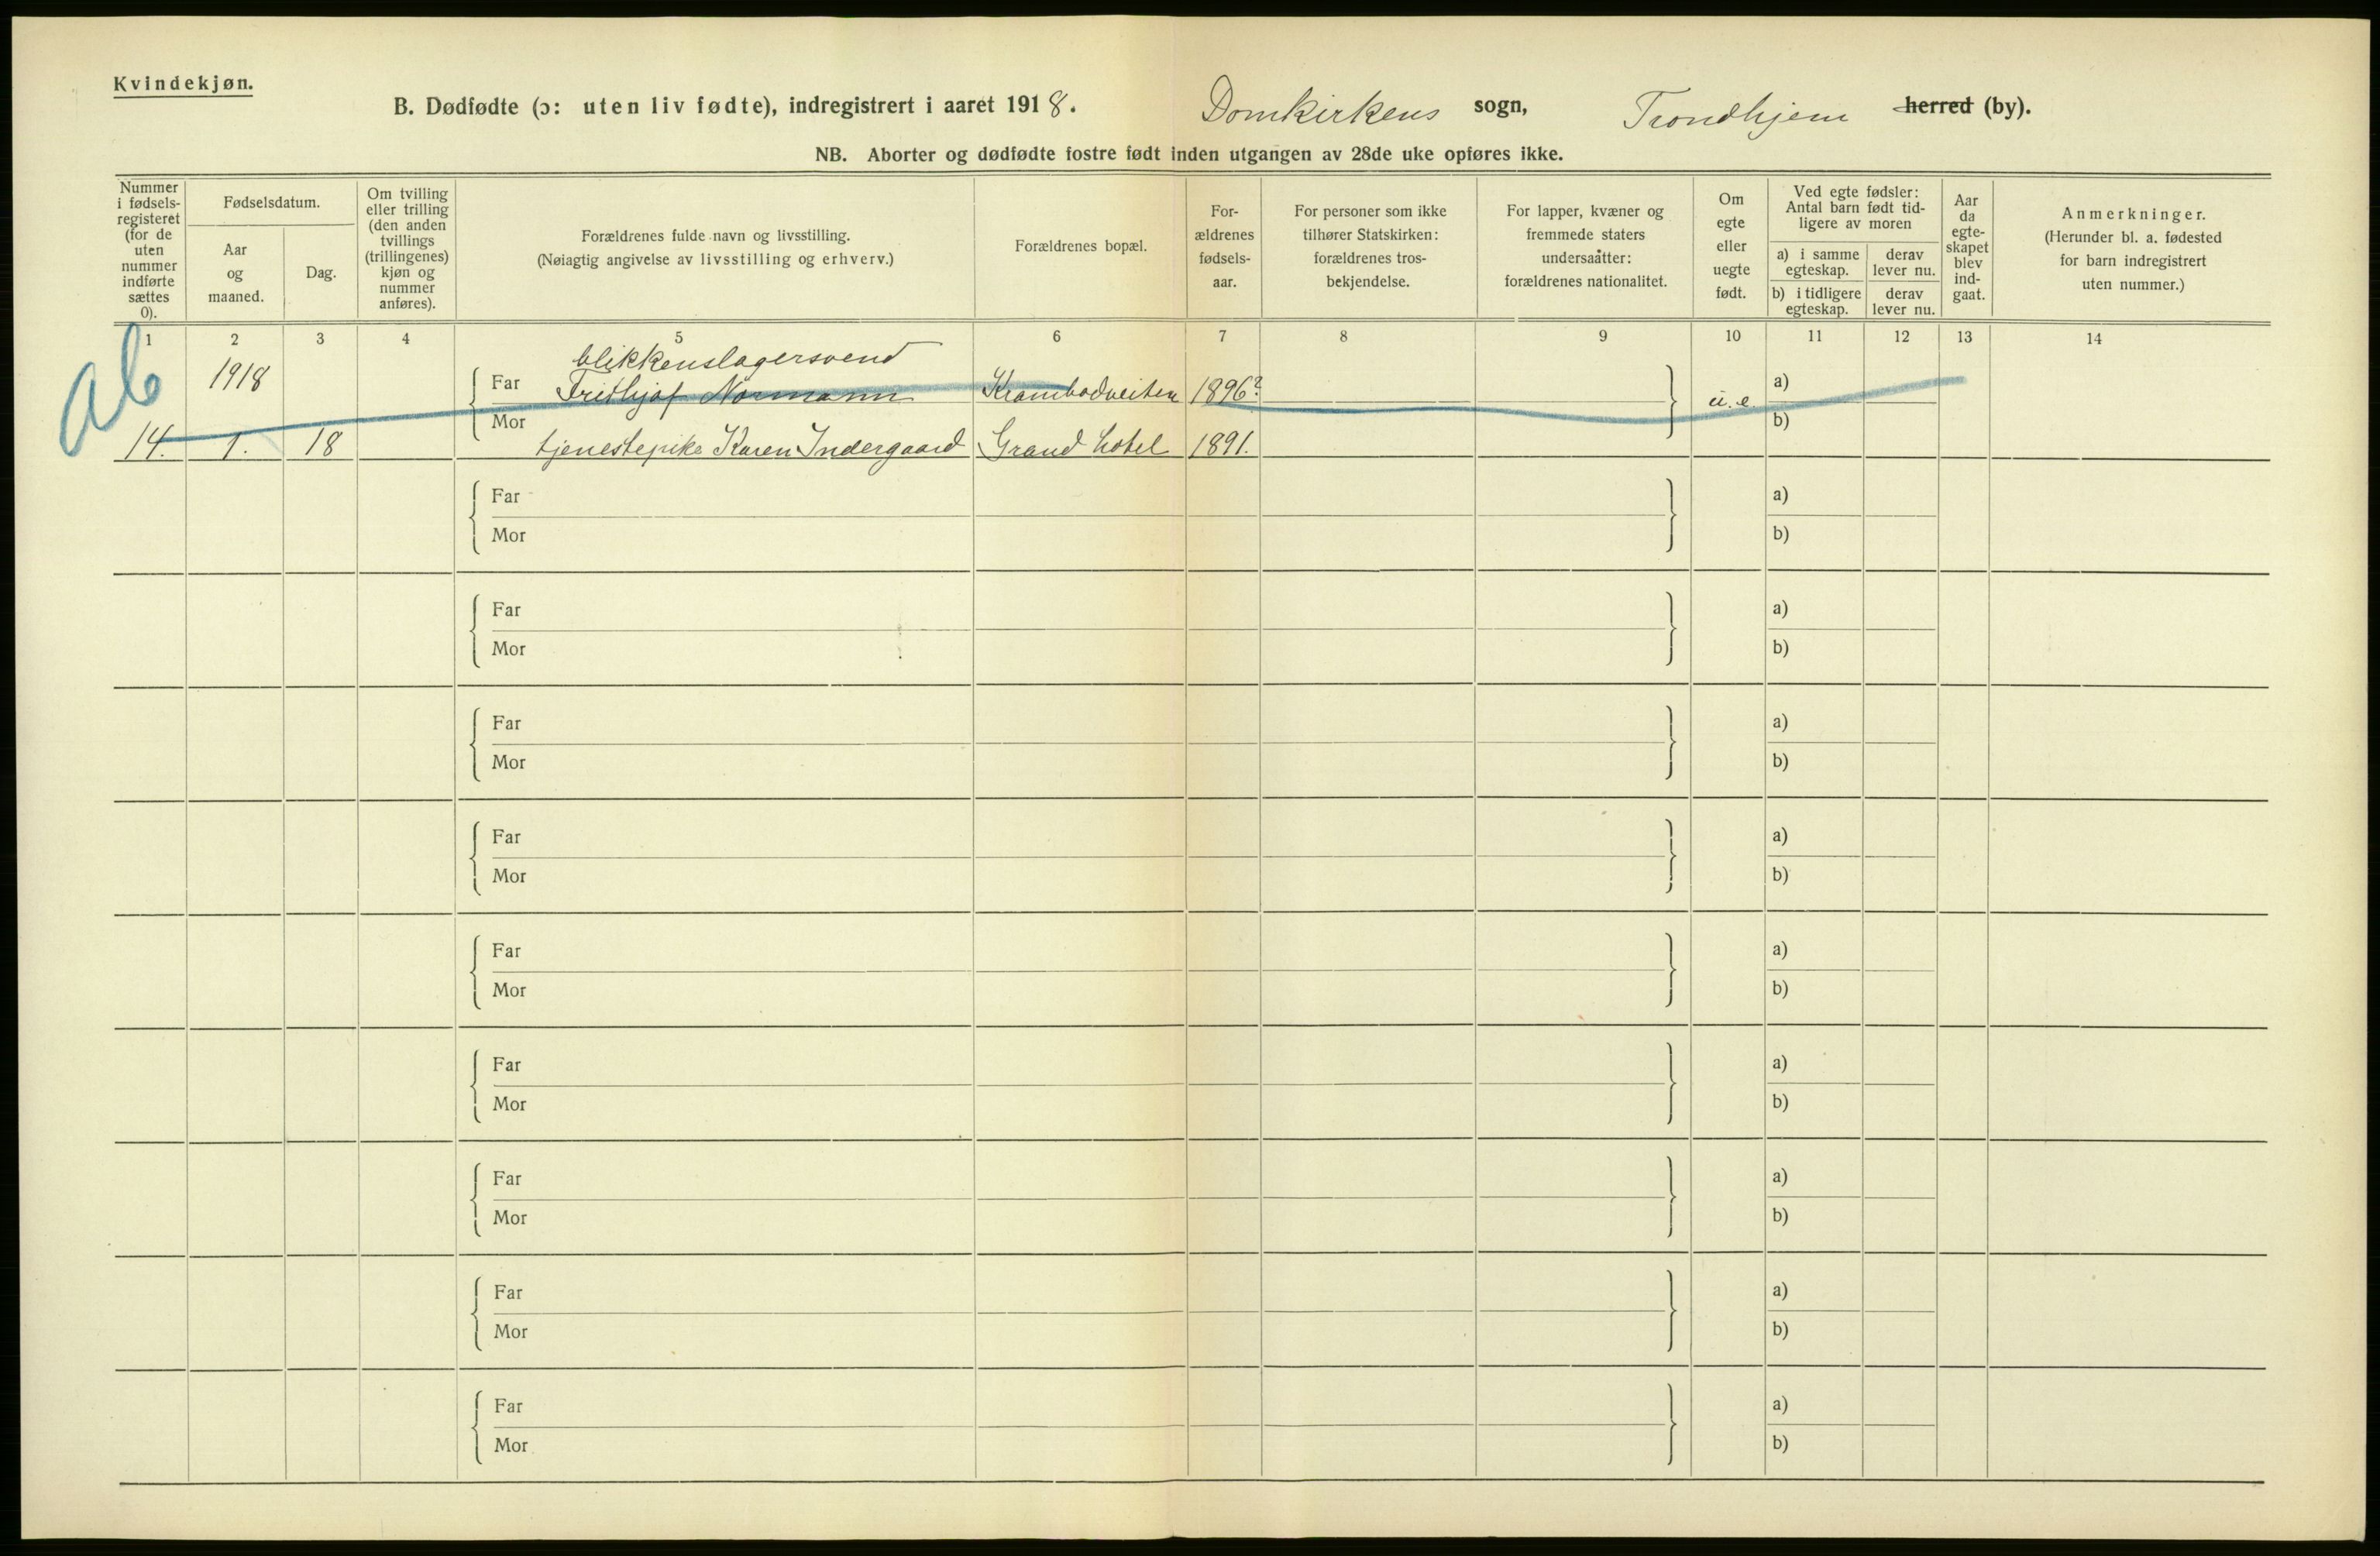 Kvindekjøn.
B. Dødfødte (ɔ: uten liv fødte), indregistrert i aaret 1918. Domkirkens sogn, Trondhjem herred (by).
NB. Aborter og dødfødte fostre født inden utgangen av 28de uke opføres ikke.
Nummer
i fødsels-
registeret
(for de
uten
nummer
indførte
sættes
0).
Fødselsdatum.
Aar
og
maaned.
Dag.
Om tvilling
eller trilling
(den anden
tvillings
(trillingenes)
kjøn og
nummer
anføres).
Forældrenes fulde navn og livsstilling.
(Nøiagtig angivelse av livsstilling og erhverv.)
Forældrenes bopæl.
For-
ældrenes
fødsels-
aar.
For personer som ikke
tilhører Statskirken:
forældrenes tros-
bekjendelse.
For lapper, kvæner og
fremmede staters
undersaatter:
forældrenes nationalitet.
Om
egte
eller
uegte
født.
Ved egte fødsler:
Antal barn født tid-
ligere av moren
a) i samme
egteskap.
derav
lever nu.
b) i tidligere
egteskap.
derav
lever nu.
Aar
da
egte-
skapet
blev
ind-
gaat.
Anmerkninger.
(Herunder bl. a. fødested
for barn indregistrert
uten nummer.)
1 2 3 4 5 6 7 8 9 10 11 12 13 14
ab
blikkenslagersvend
1918 Far Fridhjof Normann Krambodveiten 1896? u.e. a)
Mor b)
14. 1. 18 tjenestepike Karen Indergaard Grand hotel 1891.
Far a)
Mor b)
Far a)
Mor b)
Far a)
Mor b)
Far a)
Mor b)
Far a)
Mor b)
Far a)
Mor b)
Far a)
Mor b)
Far a)
Mor b)
Far a)
Mor b)